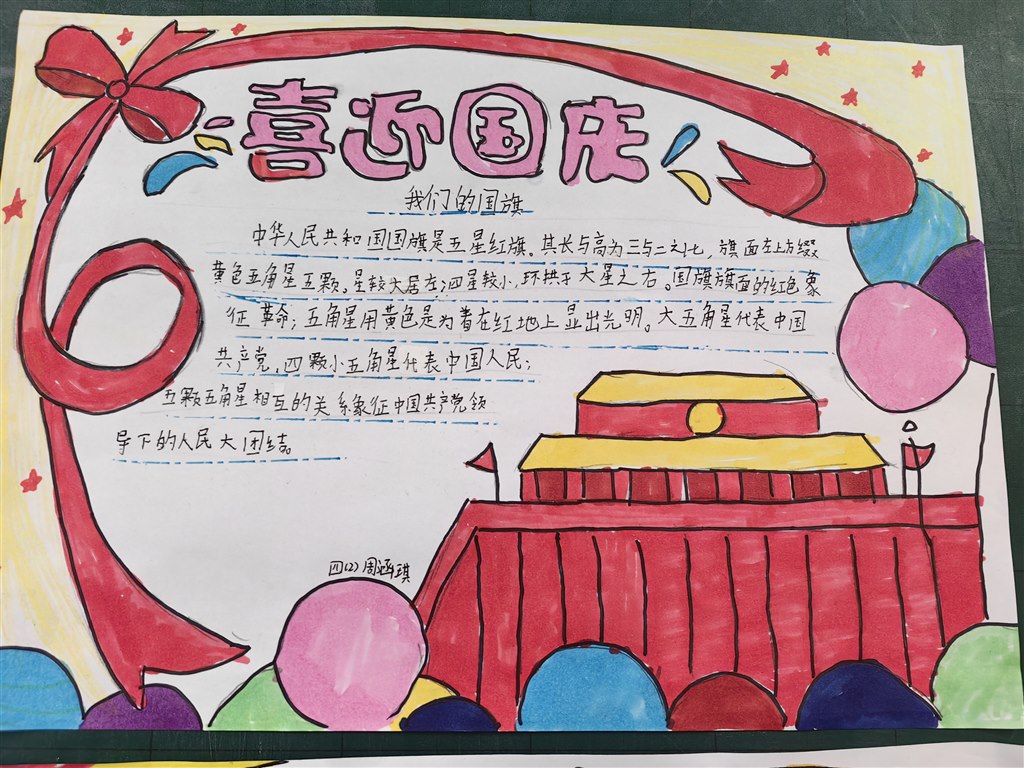 喜迎国庆
我们的国旗
中华人民共和国国旗是五星红旗。其长与高为三与二之比,旗面左上方缀
黄色五角星五颗。星较大居左;四星较小,环拱于大星之右。国旗旗面的红色象
征革命;五角星用黄色是为着在红地上显出光明。大五角星代表中国
共产党,四颗小五角星代表中国人民;
五颗五角星相互的关系象征中国共产党领
导下的人民大团结。
四(2)周涵琪